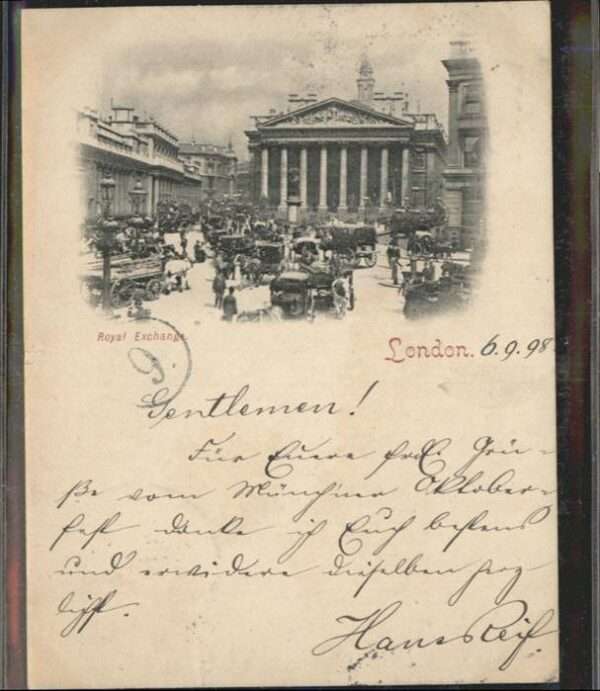 Royal Exchange.
London. 6.9.98
Gentlemen!
Für Euere frdl. Grü-
ße vom Münchner Oktober-
fest danke ich Euch bestens
und erwidere dieselben herz-
lichst.
Hans Reif